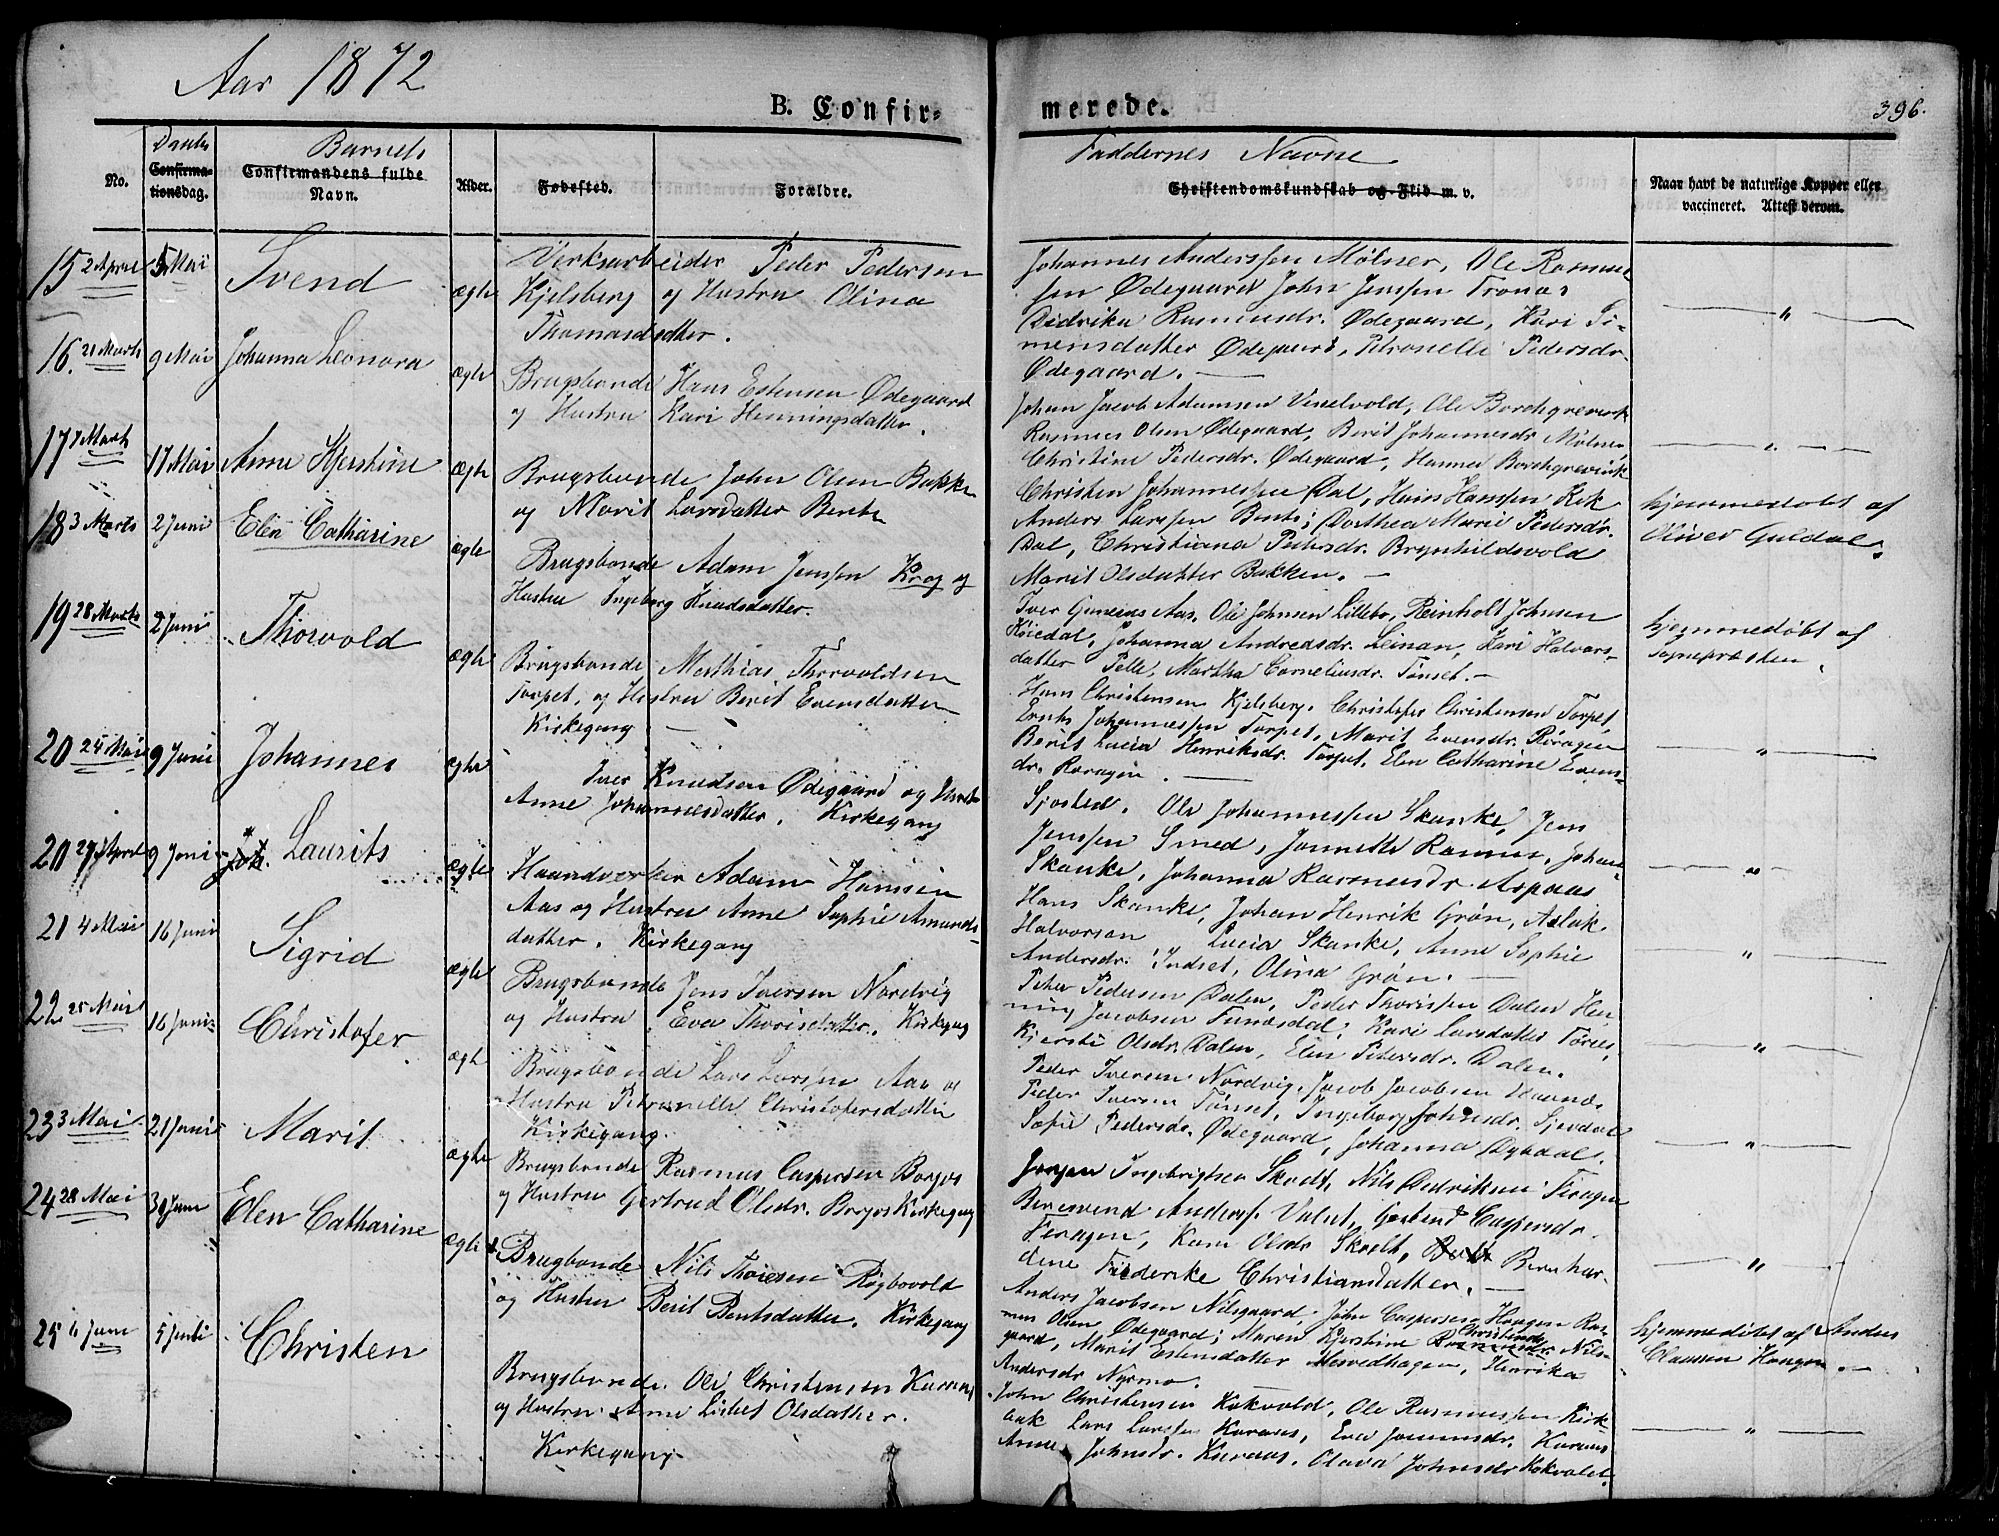 Aar 1872
B. Confirmerede.
396.
No.
Daabs
Confirmationsdag.
Barnets
Confirmandens fulde Navn.
Alder.
Fødested.
Forældre.
Faddernes Navne
Christendomskundskab og Flid m. v.
Naar havt de naturlige Kopper eller
vaccineret. Attest derom.
15 2 April 5 Mai Svend ægte
Verksarbeider Peder Pedersen
Kjelsberg og Hustru Olina
Thomasdatter.
Johannes Anderssen Mølner, Ole Rasmus-
sen Ødegaard John Jenssen Tronæs
Didrika Rasmusdr. Ødegaard, Kari Si-
mensdatter Ødegaard, Petronelle Pedersdr.
Ødegaard. —
— " —
16. 21 Marts 9 Mai Johanna Leonora ægte
Brugsbonde Hans Estensen Ødegaard
og Hustru Kari Henningsdatter.
Johan Jacob Adamsen Vinelvold, Ole Borchgrevink
Rasmus Olsen Ødegaard, Berit Johannesdr Mølner
Christine Pedersdr. Ødegaard, Hanna Borchgrevink
— " —
17 7 Mart 17 Mai Anne Kjerstine ægte
Brugsbonde John Olsen Bakke
og Marit Larsdatter Bents
Christen Johannessen Dal, Hans Hanssen Kok
Anders Larssen Bents; Dorthea Marie Pedersdr.
Dal, Christiana Pedersdr. Brynhildsvold
Marit Olsdatter Bakken. —
hjemmedøbt af
Oliver Guldal.
18 3 Marts 2 Juni Elen Catharine ægte
Brugsbonde Adam Jenssen Krog og
Hustru Ingeborg Knudsdatter.
Iver Gunersen Aas, Ole Johnsen Lillebo, Reinholt Johnsen
Koiedal, Johanna Andreasdr. Leinan, Kari Halvors-
datter Pelle, Martha Corneliusdr. Tønset. —
hjemmedøbt af
Sognepræsten.
19 28 Marts 2 Juni Thorvold ægte
Brugsbonde Mathias Thorvoldsen
Torpet, og Hustru Berit Evensdatter
Kirkegang —
Hans Christensen Kjelsberg, Christofer Christensen Torpet,
Bents Johannessen Torpet, Marit Evensdr. Røragen
Berit Lucia Henriksdr. Torpet, Elen Catharine Evens-
dr. Roragen. —
— " —
20 24 Mai 9 Juni Johannes ægte
Iver Knudsen Ødegaard og Hustr
Anne Johannesdatter. Kirkegang
Sjøsted, Ole Johannessen Skanke, Jens
Jenssen Smed, Jannette Rasmus, Johan
Skanke, Johanna Rasmusdr. Aspaas
— " —
20 27 April 9 Juni Laurits ægte
Haandverker Adam Hansen
Aas og Hustru Anne Sophie Amunds-
datter. Kirkegang
Hans Skanke, Johan Henrik Grøn, Aslak
Halvorsen Lucia Skanke, Anne Sophie
Andersdr. Indset, Olina Grøn. —
— " —
21 4 Mai 16 Juni Sigrid ægte
Brugsbonde Jens Iversen Nordvig
og Hustru Eva Thorisdatter. Kirkegang
Peter Pedersen Dalen, Peder Thorissen Dalen Hen-
ning Jacobsen Funæsdal; Kari Larsdatter Tøries,
Kjersti Olsdr. Dalen, Elen Pedersdr. Dalen.
— " —
22 25 Mai 16 Juni Christofer ægte
Brugsbonde Lars Larssen Aas og
Hustru Petronelle Christofersdatter
Kirkegang.
Peder Iversen Nordvig, Jacob Jacobsen
Peder Iversen Tønset, Ingeborg Johnsdr. Sjevdal
Sofie Pedersdr. Ødegaard, Johanna Dybdal.
— " —
23 3 Mai 21 Juni Marit ægte
Brugsbonde Rasmus Caspersen Borgos
og Hustru Gjertrud Olsdr. Borgos Kirkegang
Jørgen Ingebrigtsen Skodt, Nils Dedriksen Feragen
Berntsvend Anderss. Valset, Gjertrud Caspersdr.
Feragen, Karn Olsdr Skodt, Bernhar-
dine Frederike Christiansdatter. —
— " —
24 28 Mai 30 Juni Elen Catharine ægte
Brugbonde Nils Thoresen Rugbovold
og Hustru Berit Bentsdatter. Kirkegang
Anders Jacobsen Nilsgaard, John Caspersen Haugen Ras-
mus Olsen Ødegaard; Maren Kjerstine Christensdr. Nils-
gaard, Marit Estensdatter Mosvedhagen, Henrika
Andersdr Nyrmo. —
hjemmedøbt af Anders
Claussen Haugen. —
25 6 Juni 5 Juli Christen
Brugsbonde Ole Christensen Kuraas
og Hustru Anne Lisbet Olsdatter.
Kirkegang
John Christensen Kokvold, Ole Rasmussen Kirk-
bak Lars Larssen Kuraas, Eva Jonsdr. Kuraas
Anne Johnsdr. Kuraas, Olava Johnsdr Kokvold.
— " —